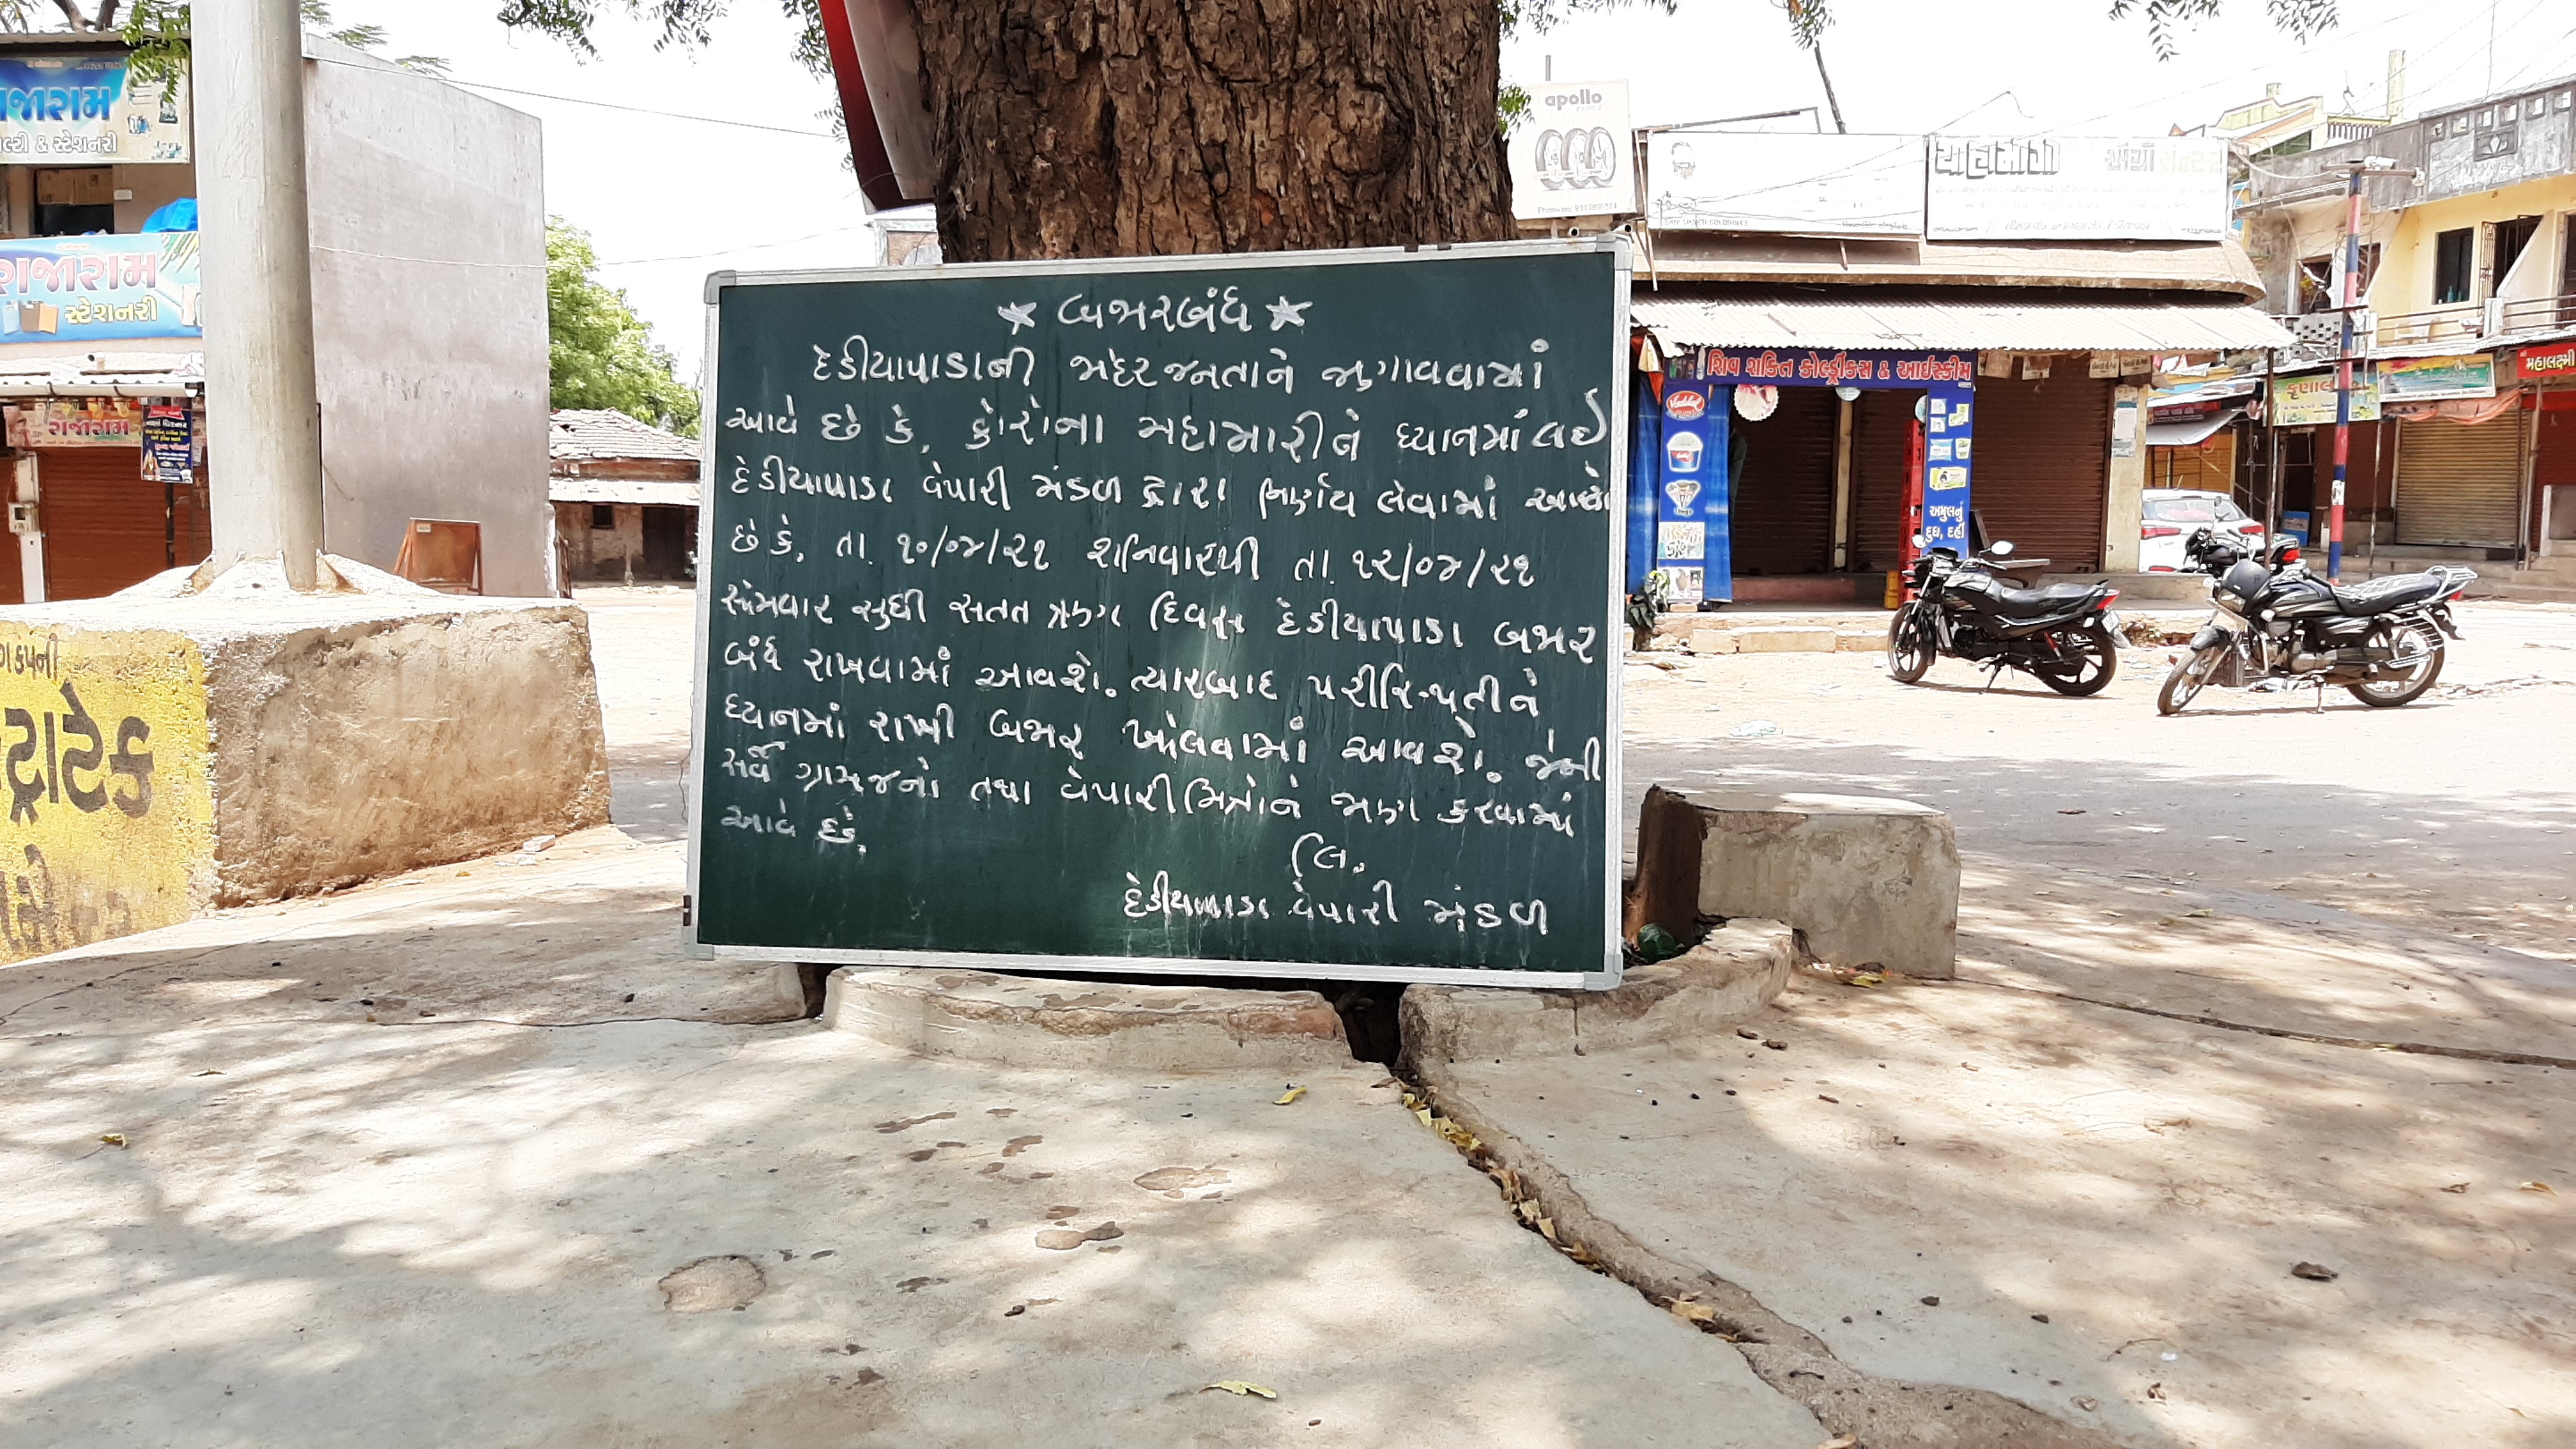 ★ બજારબંધ ★
દેડીયાપાડાની જાહેર જનતાને જણાવવામાં
આવે છે કે, કોરોના મહામારીને ધ્યાનમાં લઈ
દેડીયાપાડા વેપારી મંડળ દ્વારા નિર્ણય લેવામાં આવ્યો
છે કે, તા. ૧૦/૦૪/૨૧ શનિવારથી તા. ૧૨/૦૪/૨૧
સોમવાર સુધી સતત ત્રણ દિવસ દેડીયાપાડા બજાર
બંધ રાખવામાં આવશે. ત્યારબાદ પરીસ્થિતીને
ધ્યાનમાં રાખી બજાર ખોલવામાં આવશે. જેની
સર્વે ગ્રામજનો તથા વેપારીમિત્રોને જાણ કરવામાં
આવે છે.
લિ.
દેડીયાપાડા વેપારી મંડળ
સ્ટેશનરી
રાજારામ
સ્ટેશનરી
રાજારામ
apollo
શિવ શક્તિ કોલ્ડ્રીંકસ & આઈસ્ક્રીમ
Vadilal
અમુલનું
દુધ, દહીં
કૃણાલ
મહાલક્ષ્મી
કંપની